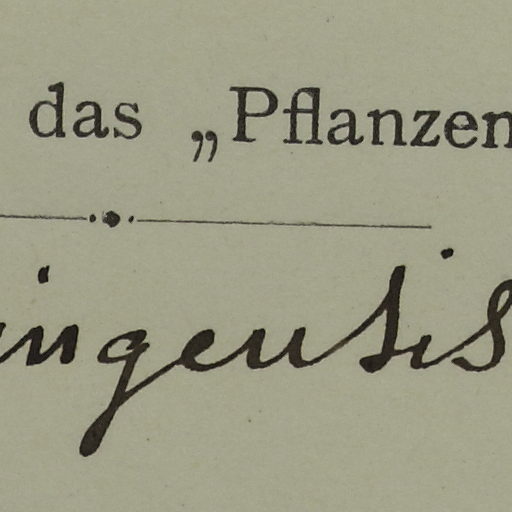 das „Pflanzen
ingensis